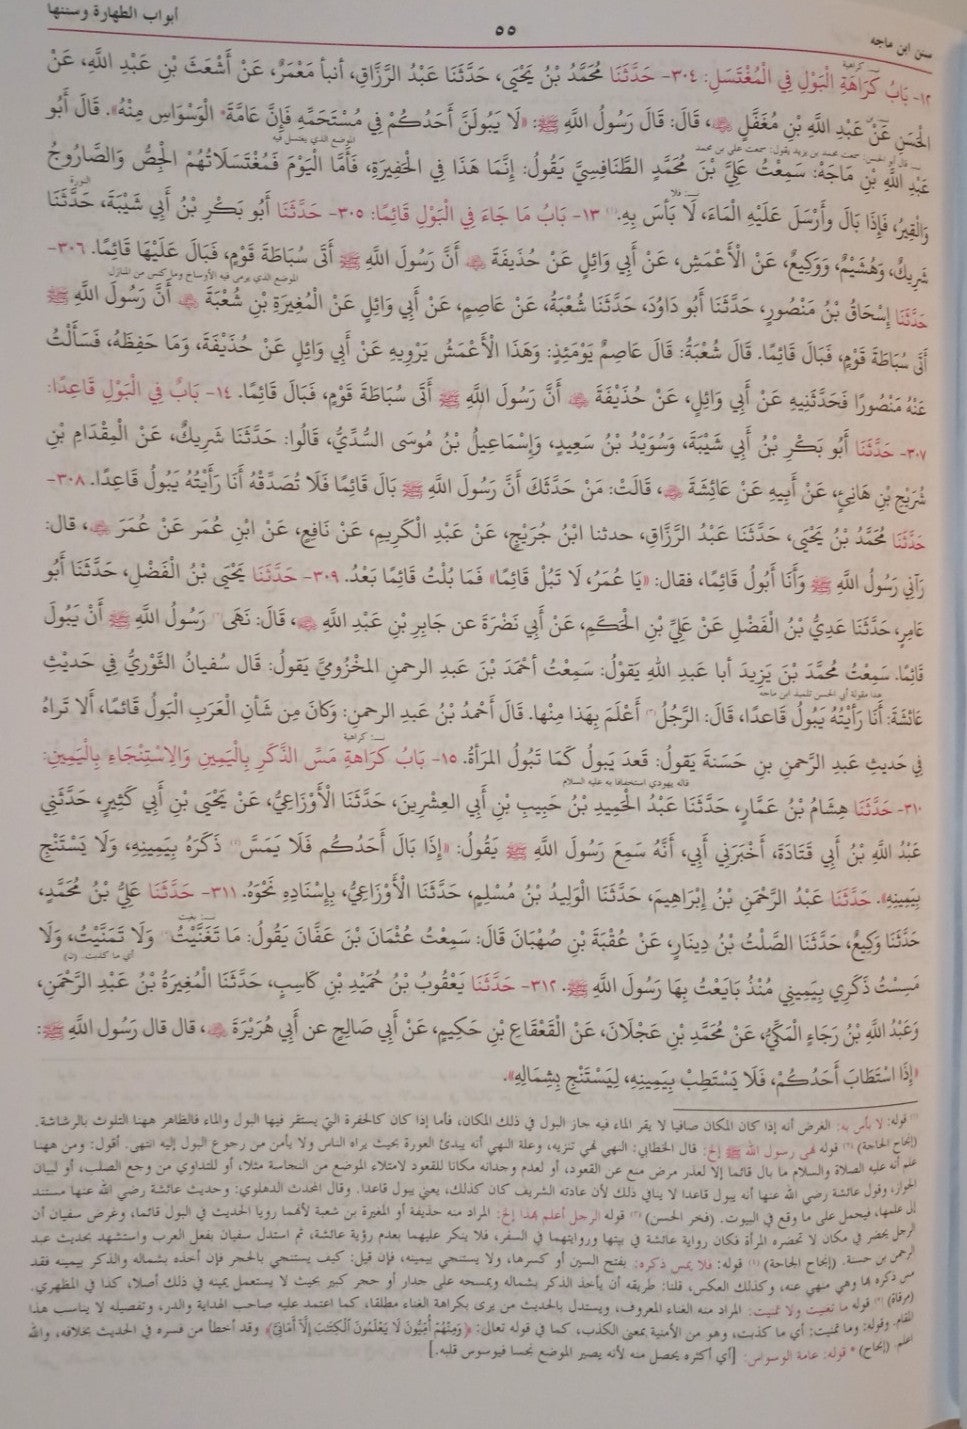 سنن ابن ماجه
٥٥
أبواب الطهارة وسننها
نسـ: كراهية
١٢- بَابُ كَرَاهَةِ الْبَوْلِ فِي الْمُغْتَسَلِ: ٣٠٤- حَدَّثَنَا مُحَمَّدُ بْنُ يَحْيَى، حَدَّثَنَا عَبْدُ الرَّزَّاقِ، أنبأ مَعْمَرٌ، عَنْ أَشْعَثَ بْنِ عَبْدِ اللَّهِ، عَنْ
الْحَسَنِ عَنْ عَبْدِ اللَّهِ بْنِ مُغَفَّلٍ ﷺ، قَالَ: قَالَ رَسُولُ اللَّهِ ﷺ: «لَا يَبُولَنَّ أَحَدُكُمْ فِي مُسْتَحَمِّهِ فَإِنَّ عَامَّةَ* الْوَسْوَاسِ مِنْهُ». قَالَ أَبُو
الموضع الذي يغتسل فيه
قال أبو الحسن: سمعت محمد بن يزيد يقول: سمعت علي بن محمد
عَبْدِ اللَّهِ بْنِ مَاجَهْ: سَمِعْتُ عَلِيَّ بْنَ مُحَمَّدٍ الطَّنَافِسِيَّ يَقُولُ: إِنَّمَا هَذَا فِي الْحَفِيرَةِ، فَأَمَّا الْيَوْمَ فَمُغْتَسَلَاتُهُمْ الْجِصُّ وَالصَّارُوجُ
النورة
نسـ: فلا
وَالْقِيرُ، فَإِذَا بَالَ وأَرْسَلَ عَلَيْهِ الْمَاءَ، لَا بَأْسَ بِهِ.(١) ١٣- بَابُ مَا جَاءَ فِي الْبَوْلِ قَائِمًا: ٣٠٥- حَدَّثَنَا أَبُو بَكْرِ بْنُ أَبِي شَيْبَةَ، حَدَّثَنَا
شَرِيكٌ، وَهُشَيْمٌ، وَوَكِيعٌ، عَنْ الْأَعْمَشِ، عَنْ أَبِي وَائِلٍ عَنْ حُذَيْفَةَ أَنَّ رَسُولَ اللَّهِ ﷺ أَتَى سُبَاطَةَ قَوْمٍ، فَبَالَ عَلَيْهَا قَائِمًا. ٣٠٦-
الموضع الذي يرمى فيه الأوساخ وما كنس من المنازل
حَدَّثَنَا إِسْحَاقُ بْنُ مَنْصُورٍ، حَدَّثَنَا أَبُو دَاوُدَ، حَدَّثَنَا شُعْبَةُ، عَنْ عَاصِمٍ، عَنْ أَبِي وَائِلٍ عَنْ الْمُغِيرَةِ بْنِ شُعْبَةَ أَنَّ رَسُولَ اللَّهِ ﷺ
أَتَى سُبَاطَةَ قَوْمٍ، فَبَالَ قَائِمًا. قَالَ شُعْبَةُ: قَالَ عَاصِمٌ يَوْمَئِذٍ: وَهَذَا الْأَعْمَشُ يَرْوِيهِ عَنْ أَبِي وَائِلٍ عَنْ حُذَيْفَةَ، وَمَا حَفِظَهُ، فَسَأَلْتُ
عَنْهُ مَنْصُورًا فَحَدَّثَنِيهِ عَنْ أَبِي وَائِلٍ، عَنْ حُذَيْفَةَ أَنَّ رَسُولَ اللَّهِ ﷺ أَتَى سُبَاطَةَ قَوْمٍ، فَبَالَ قَائِمًا. ١٤- بَابٌ فِي الْبَوْلِ قَاعِدًا:
٣٠٧- حَدَّثَنَا أَبُو بَكْرِ بْنُ أَبِي شَيْبَةَ، وَسُوَيْدُ بْنُ سَعِيدٍ، وَإِسْمَاعِيلُ بْنُ مُوسَى السُّدِّيُّ، قَالُوا: حَدَّثَنَا شَرِيكٌ، عَنْ الْمِقْدَامِ بْنِ
شُرَيْحِ بْنِ هَانِئٍ، عَنْ أَبِيهِ عَنْ عَائِشَةَ، قَالَتْ: مَنْ حَدَّثَكَ أَنَّ رَسُولَ اللَّهِ ﷺ بَالَ قَائِمًا فَلَا تُصَدِّقْهُ أَنَا رَأَيْتُهُ يَبُولُ قَاعِدًا. ٣٠٨-
حَدَّثَنَا مُحَمَّدُ بْنُ يَحْيَى، حَدَّثَنَا عَبْدُ الرَّزَّاقِ، حدثنا ابْنُ جُرَيْجٍ، عَنْ عَبْدِ الْكَرِيمِ، عَنْ نَافِعٍ، عَنْ ابْنِ عُمَرَ عَنْ عُمَرَ، قال:
رَآنِي رَسُولُ اللَّهِ ﷺ وَأَنَا أَبُولُ قَائِمًا، فقال: «يَا عُمَرُ، لَا تَبُلْ قَائِمًا» فَمَا بُلْتُ قَائِمًا بَعْدُ. ٣٠٩- حَدَّثَنَا يَحْيَى بْنُ الْفَضْلِ، حَدَّثَنَا أَبُو
عَامِرٍ، حَدَّثَنَا عَدِيُّ بْنُ الْفَضْلِ عَنْ عَلِيِّ بْنِ الْحَكَمِ، عَنْ أَبِي نَضْرَةَ عن جَابِرِ بْنِ عَبْدِ اللَّهِ، قَالَ: نَهَى(٢) رَسُولُ اللَّهِ ﷺ أَنْ يَبُولَ
قَائِمًا. سَمِعْتُ مُحَمَّدَ بْنَ يَزِيدَ أبا عَبدِ اللهِ يَقوْلُ: سَمِعْتُ أَحْمَدَ بْنَ عَبدِ الرحمنِ المخْزُومِيَّ يَقولُ: قَال سُفيانُ الثَّوْرِيُّ فِي حَديْثِ
هذا مقولة أبي الحسن تلميذ ابن ماجه
عَائشَةَ: أَنَا رَأَيْتُهُ يَبُولُ قَاعدًا، قَالَ: الرَّجُلُ(٣) أَعْلَمُ بِهَذا مِنْها. قَالَ أَحْمدُ بْنُ عَبدِ الرحمنِ: وَكانَ مِن شَأنِ الْعَرَبِ البَولُ قَائمًا، أَلا تَراهُ
فِي حَديثِ عَبدِ الرَّحمنِ بنِ حَسَنةَ يَقولُ: قَعدَ يَبولُ كَمَا تَبُولُ المَرأةُ. ١٥- بَابُ كَرَاهَةِ مَسِّ الذَّكَرِ بِالْيَمِينِ وَالِاسْتِنْجَاءِ بِالْيَمِينِ:
نسـ: كراهية
قاله يهودي استحفافا به عليه السلام
٣١٠- حَدَّثَنَا هِشَامُ بْنُ عَمَّارٍ، حَدَّثَنَا عَبْدُ الْحَمِيدِ بْنُ حَبِيبِ بْنِ أَبِي العِشْرِينَ، حَدَّثَنَا الْأَوْزَاعِيُّ، عَنْ يَحْيَى بْنِ أَبِي كَثِيرٍ، حَدَّثَنِي
عَبْدُ اللَّهِ بْنُ أَبِي قَتَادَةَ، أَخْبَرَنِي أَبِي، أَنَّهُ سَمِعَ رَسُولَ اللَّهِ ﷺ يَقُولُ: «إِذَا بَالَ أَحَدُكُم فَلَا يَمَسَّ(٤) ذَكَرَهُ بِيَمِينِهِ، وَلَا يَسْتَنْجِ
بِيَمِينِهِ». حَدَّثَنَا عَبْدُ الرَّحْمَنِ بْنُ إِبْرَاهِيمَ، حَدَّثَنَا الْوَلِيدُ بْنُ مُسْلِمٍ، حَدَّثَنَا الْأَوْزَاعِيُّ، بِإِسْنَادِهِ نَحْوَهُ. ٣١١- حَدَّثَنَا عَلِيُّ بْنُ مُحَمَّدٍ،
نسـ: بغيت
حَدَّثَنَا وَكِيعٌ، حَدَّثَنَا الصَّلْتُ بْنُ دِينَارٍ، عَنْ عُقْبَةَ بْنِ صُهْبَانَ قَالَ: سَمِعْتُ عُثْمَانَ بْنَ عَفَّانَ يَقُولُ: مَا تَغَنَّيْتُ(٥) وَلَا تَمَنَّيْتُ، وَلَا
أي ما كذبت. (ن)
مَسِسْتُ ذَكَرِي بِيَمِينِي مُنْذُ بَايَعْتُ بِهَا رَسُولَ اللَّهِ ﷺ. ٣١٢- حَدَّثَنَا يَعْقُوبُ بْنُ حُمَيْدِ بْنِ كَاسِبٍ، حَدَّثَنَا الْمُغِيرَةُ بْنُ عَبْدِ الرَّحْمَنِ،
وَعَبْدُ اللَّهِ بْنُ رَجَاءٍ الْمَكِّيُّ، عَنْ مُحَمَّدِ بْنِ عَجْلَانَ، عَنْ الْقَعْقَاعِ بْنِ حَكِيمٍ، عَنْ أَبِي صَالِحٍ عن أَبِي هُرَيْرَةَ، قال قال رَسُولُ اللَّهِ ﷺ:
«إِذَا اسْتَطَابَ أَحَدُكُمْ، فَلَا يَسْتَطِبْ بِيَمِينِهِ، لِيَسْتَنْجِ بِشِمَالِهِ».
(١) قوله: لا بأس به: الغرض أنه إذا كان المكان صافيا لا يقر الماء فيه جاز البول في ذلك المكان، فأما إذا كان كالحفرة التي يستقر فيها البول والماء فالظاهر ههنا التلوث بالرشاشة.
(إنجاح الحاجة) (٢) قوله نهى رسول الله ﷺ إلخ: قال الخطابي: النهي نهي تنزيه، وعلة النهي أنه يبدئ العورة بحيث يراه الناس ولا يأمن من رجوع البول إليه انتهى. أقول: ومن ههنا
علم أنه عليه الصلاة والسلام ما بال قائما إلا لعذر مرض منع عن القعود، أو لعدم وجدانه مكانا للقعود لامتلاء الموضع من النجاسة مثلا، أو للتداوي من وجع الصلب، أو لبيان
الجواز، وقول عائشة رضي الله عنها أنه يبول قاعدا لا ينافي ذلك لأن عادته الشريف كان كذلك، يعني يبول قاعدا. وقال المحدث الدهلوي: وحديث عائشة رضي الله عنها مستند
إلى علمها، فيحمل على ما وقع في البيوت. (فخر الحسن) (٣) قوله الرجل أعلم بهذا إلخ: المراد منه حذيفة أو المغيرة بن شعبة لأنهما رويا الحديث في البول قائما، وغرض سفيان أن
الرجل يحضر في مكان لا تحضره المرأة فكان رواية عائشة في بيتها وروايتهما في السفر، فلا ينكر عليهما بعدم رؤية عائشة، ثم استدل سفيان بفعل العرب واستشهد بحديث عبد
الرحمن بن حسنة. (إنجاح الحاجة) (٤) قوله: فلا يمس ذكره: بفتح السين أو كسرها، ولا يستنجي بيمينه، فإن قيل: كيف يستنجي بالحجر فإن أخذه بشماله والذكر بيمينه فقد
مس ذكره بها وهي منهي عنه، وكذلك العكس، قلنا: طريقه أن يأخذ الذكر بشماله ويمسحه على جدار أو حجر كبير بحيث لا يستعمل يمينه في ذلك أصلا، كذا في المظهري.
(مرقاة) (٥) قوله ما تغنيت ولا تمنيت: المراد منه الغناء المعروف، ويستدل بالحديث من يرى بكراهة الغناء مطلقا، كما اعتمد عليه صاحب الهداية والدر، وتفصيله لا يناسب هذا
المقام. وقوله: وما تمنيت: أي ما كذبت، وهو من الأمنية بمعنى الكذب، كما في قوله تعالى: ﴿وَمِنْهُمْ أُمِّيُّونَ لَا يَعْلَمُونَ الْكِتَابَ إِلَّا أَمَانِيَّ﴾ وقد أخطأ من فسره في الحديث بخلافه، والله
أعلم. (إنجاح) * قوله: عامة الوسواس: [أي أكثره يحصل منه لأنه يصير الموضع نجسا فيوسوس قلبه.]